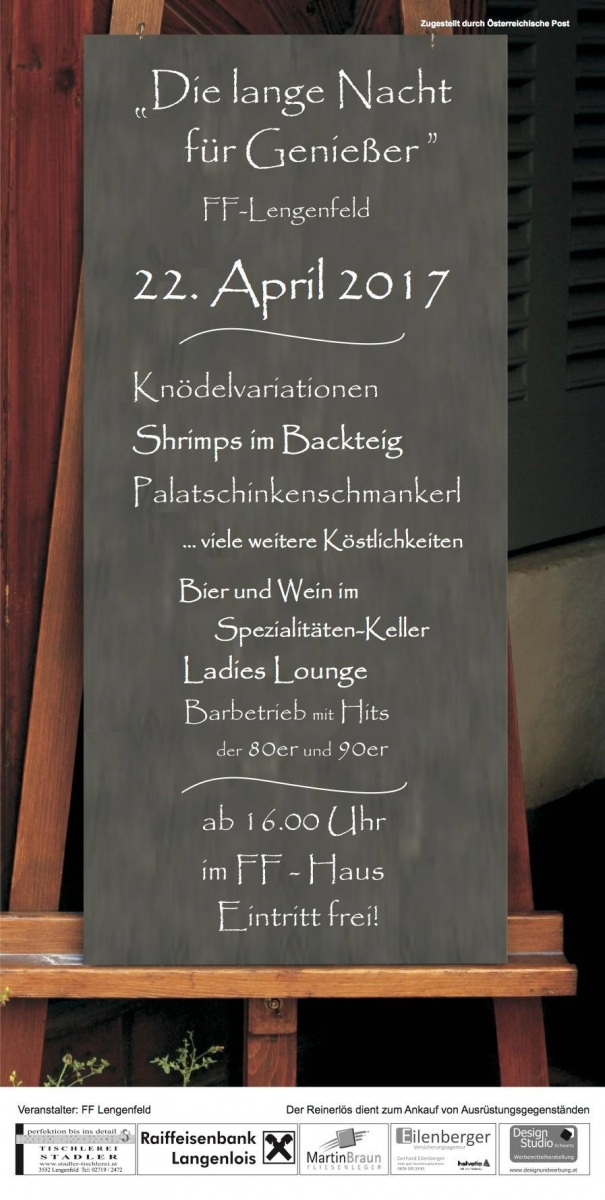 Zugestellt durch Österreichische Post
„Die lange Nacht
für Genießer”
FF-Lengenfeld
22. April 2017
Knödelvariationen
Shrimps im Backteig
Palatschinkenschmankerl
... viele weitere Köstlichkeiten
Bier und Wein im
Spezialitäten-Keller
Ladies Lounge
Barbetrieb mit Hits
der 80er und 90er
ab 16.00 Uhr
im FF - Haus
Eintritt frei!
Veranstalter: FF Lengenfeld
Der Reinerlös dient zum Ankauf von Ausrüstungsgegenständen
perfektion bis ins detail
TISCHLEREI
STADLER
www.stadler-tischlerei.at
3552 Lengenfeld Tel: 02719 / 2472
Raiffeisenbank
Langenlois
MartinBraun
FLIESENLEGER
Eilenberger
Versicherungsagentur
Gerhard Eilenberger
helvetia
Design
Studio
Werbemittelherstellung
www.designundwerbung.at